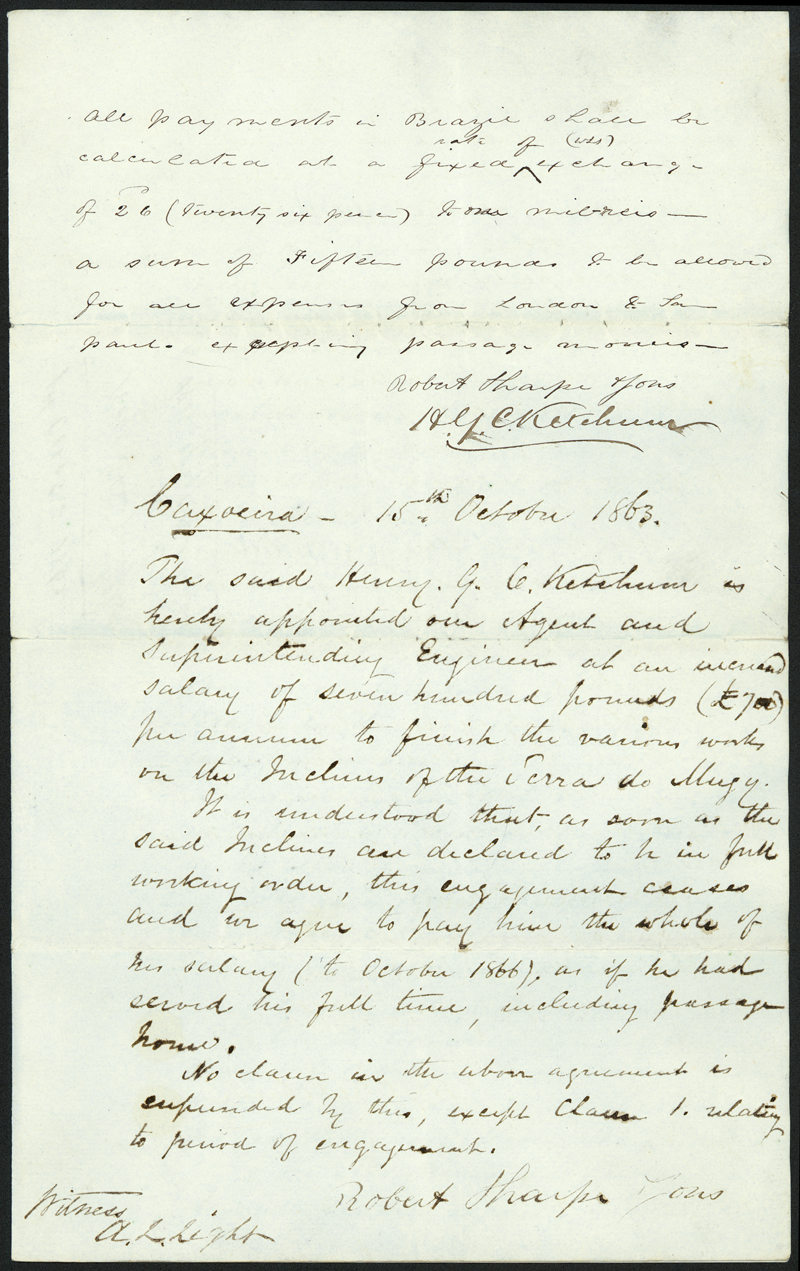 all payments in Brazil shall be
rate of (wds)
calculated at a fixed ^ exchange
of 26 (twenty six pence) to one milreis —
a sum of Fifteen pounds to be allowed
for all expenses from London to San
paulo excepting passage moneis —
Robert Sharpe & Sons
H.G.C. Ketchum
Caxoeira — 15th October 1863.
The said Henry. G. C. Ketchum is
hereby appointed our Agent and
Superintending Engineer at an increased
salary of seven hundred pounds (£700)
per annum to finish the various works
on the Inclines of the Serra do Mugy.
It is understood that, as soon as the
said Inclines are declared to be in full
working order, this engagement ceases
and we agree to pay him the whole of
his salary (to October 1866), as if he had
served his full time, including passage
home.
No clause in the above agreement is
expunded by this, except Clause 1. relating
to period of engagement.
Robert Sharpe & Sons
Witness
A. L. Light